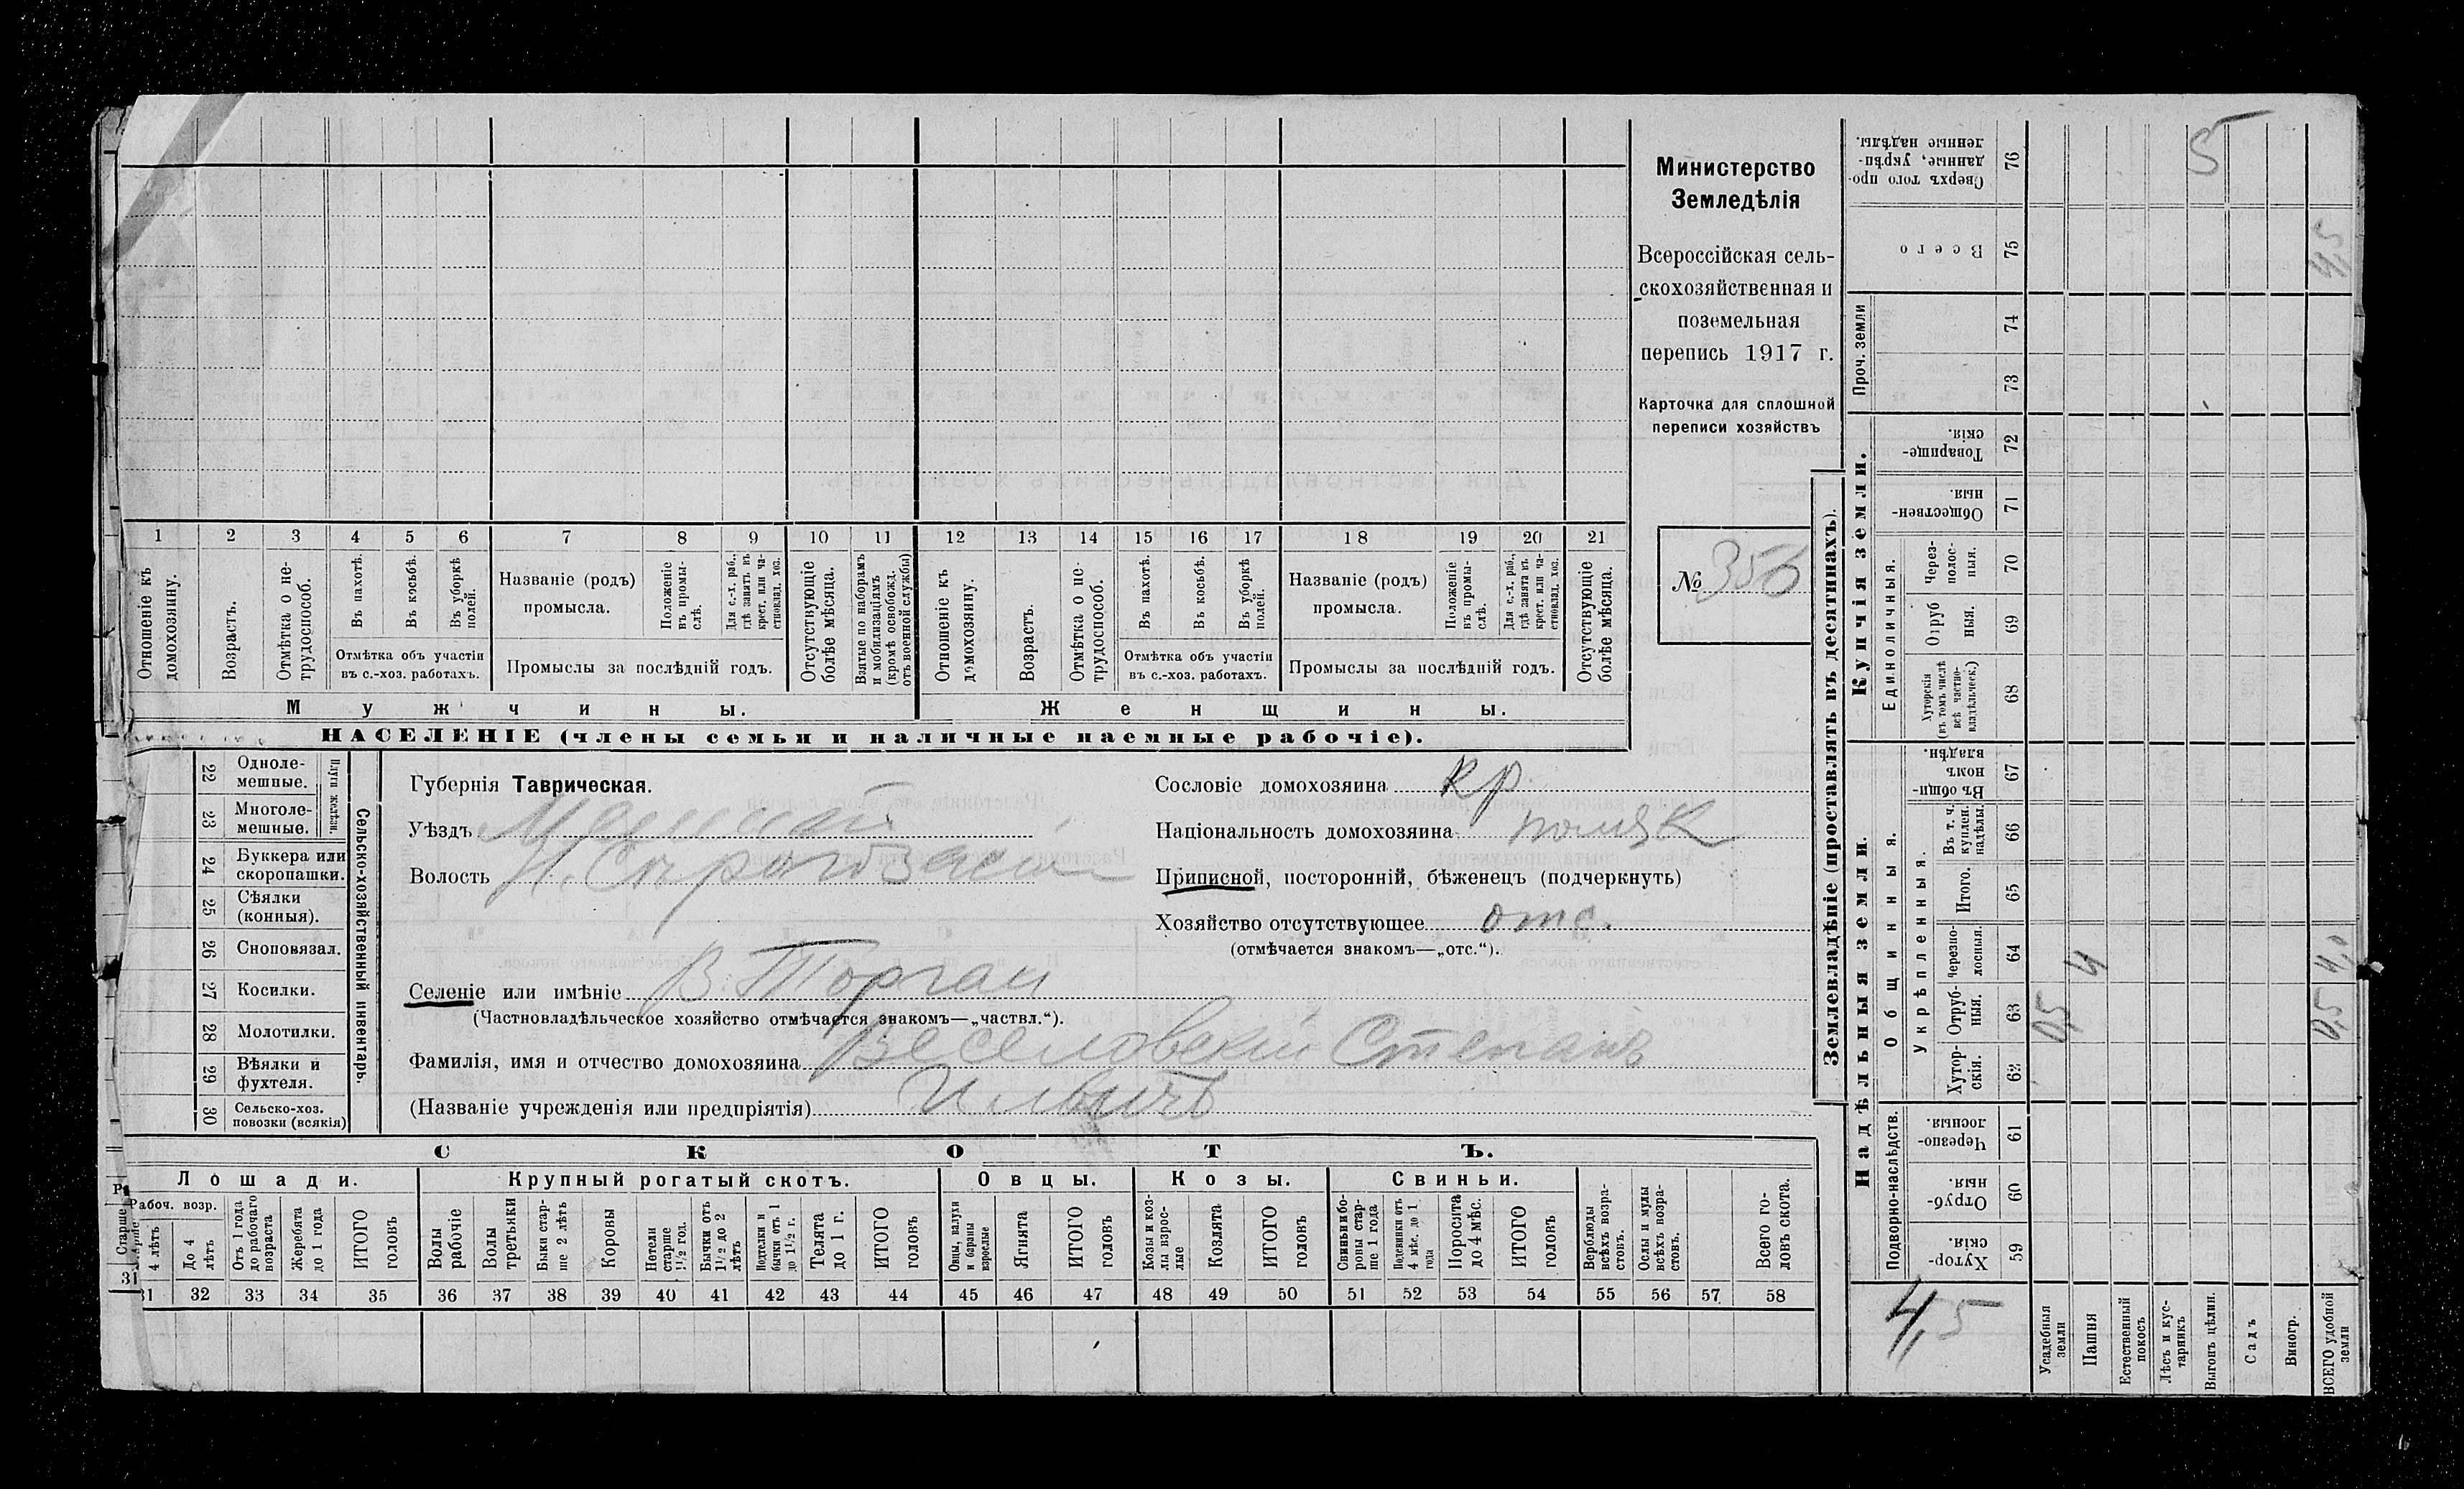 1 2 3 4 5 6 7 8 9 10 11 12 13 14 15 16 17 18 19 20 21
Отношеніе къ домохозяину.
Возрастъ.
Отмѣтка о не-трудоспособ.
Въ пахотѣ.
Въ косьбѣ.
Въ уборкѣ полей.
Отмѣтка объ участіи
въ с.-хоз. работахъ.
Названіе (родъ)
промысла.
Положеніе въ промы-слѣ.
Для с.-х. раб., гдѣ занятъ въ крест. или ча-стновлад. хоз.
Промыслы за послѣдній годъ.
Отсутствующіе болѣе мѣсяца.
Взятые по наборамъ и мобилизаціямъ (кромѣ освобожд. отъ военной службы)
Отношеніе къ домохозяину.
Возрастъ.
Отмѣтка о не-трудоспособ.
Въ пахотѣ.
Въ косьбѣ.
Въ уборкѣ полей.
Отмѣтка объ участіи
въ с.-хоз. работахъ.
Названіе (родъ)
промысла.
Положеніе въ промы-слѣ.
Для с.-х. раб., гдѣ занята въ крест. или ча-стновлад. хоз.
Промыслы за послѣдній годъ.
Отсутствующіе болѣе мѣсяца.
Мужчины. Женщины.
НАСЕЛЕНІЕ (члены семьи и наличные наемные рабочіе).
Министерство
Земледѣлія
Всероссійская сель-
скохозяйственная и
поземельная
перепись 1917 г.
Карточка для сплошной
переписи хозяйствъ
№ 356
22 Одноле-мешные.
23 Многоле-мешные.
Плуги желѣзн.
24 Буккера или скоропашки.
25 Сѣялки (конныя).
26 Сноповязал.
27 Косилки.
28 Молотилки.
29 Вѣялки и фухтеля.
30 Сельско-хоз. повозки (всякія)
Сельско-хозяйственный инвентарь.
Губернія Таврическая.
Уѣздъ
Волость
Селеніе или имѣніе В. Торгаи
(Частновладѣльческое хозяйство отмѣчается знакомъ—„частвл.“).
Фамилія, имя и отчество домохозяина Веселовскій Степанъ
(Названіе учрежденія или предпріятія) Ильичъ
Сословіе домохозяина кр.
Національность домохозяина поляк
Приписной, посторонній, бѣженецъ (подчеркнуть)
Хозяйство отсутствующее отс.
(отмѣчается знакомъ—„отс.“).
СКОТЪ.
Лошади. Крупный рогатый скотъ. Овцы. Козы. Свиньи.
Рабоч. возр.
Старше 4 лѣтъ
До 4 лѣтъ
Отъ 1 года до рабочаго возраста
Жеребята до 1 года
ИТОГО головъ
Волы рабочіе
Волы третьяки
Быки стар-ше 2 лѣтъ
Коровы
Нетели старше 1½ год.
Бычки отъ 1½ до 2 лѣтъ
Подтелки и бычки отъ 1 до 1½ г.
Телята до 1 г.
ИТОГО головъ
Овцы, валухи и бараны взрослые
Ягнята
ИТОГО головъ
Козы и коз-лы взрос-лые
Козлята
ИТОГО головъ
Свиньи и бо-ровы стар-ше 1 года
Подсвинки отъ 4 мѣс. до 1 года
Поросята до 4 мѣс.
ИТОГО головъ
Верблюды всѣхъ возра-стовъ.
Ослы и мулы всѣхъ возра-стовъ.
Всего го-ловъ скота.
31 32 33 34 35 36 37 38 39 40 41 42 43 44 45 46 47 48 49 50 51 52 53 54 55 56 57 58
Землевладѣніе (проставлять въ десятинахъ).
Надѣльныя земли.
Купчія земли.
Проч. земли
Подворно-наслѣдств.
Общинныя.
Укрѣпленныя.
Единоличныя.
Хутор-скія. 59
Отруб-ныя. 60
Черезпо-лосныя. 61
Хутор-скія. 62
Отруб-ныя. 63
Черезпо-лосныя. 64
Итого. 65
Въ т. ч. куплен. надѣлы. 66
Въ общин-номъ владѣн. 67
Хуторскія (въ томъ числѣ всѣ частно-владѣльческ.) 68
Отруб ныя. 69
Через-полос-ныя. 70
Обществен-ныя. 71
Товарище-скія. 72
73
74
Всего 75
Сверхъ того про-данные, укрѣп-ленные надѣлы. 76
Усадебныя земли 0,5
Пашня 4
Естественный покосъ
Лѣсъ и кус-тарникъ
Выгонъ цѣлин. 5
Садъ
Виногр.
ВСЕГО удобной земли 0,5 4,0 4,5
4,5